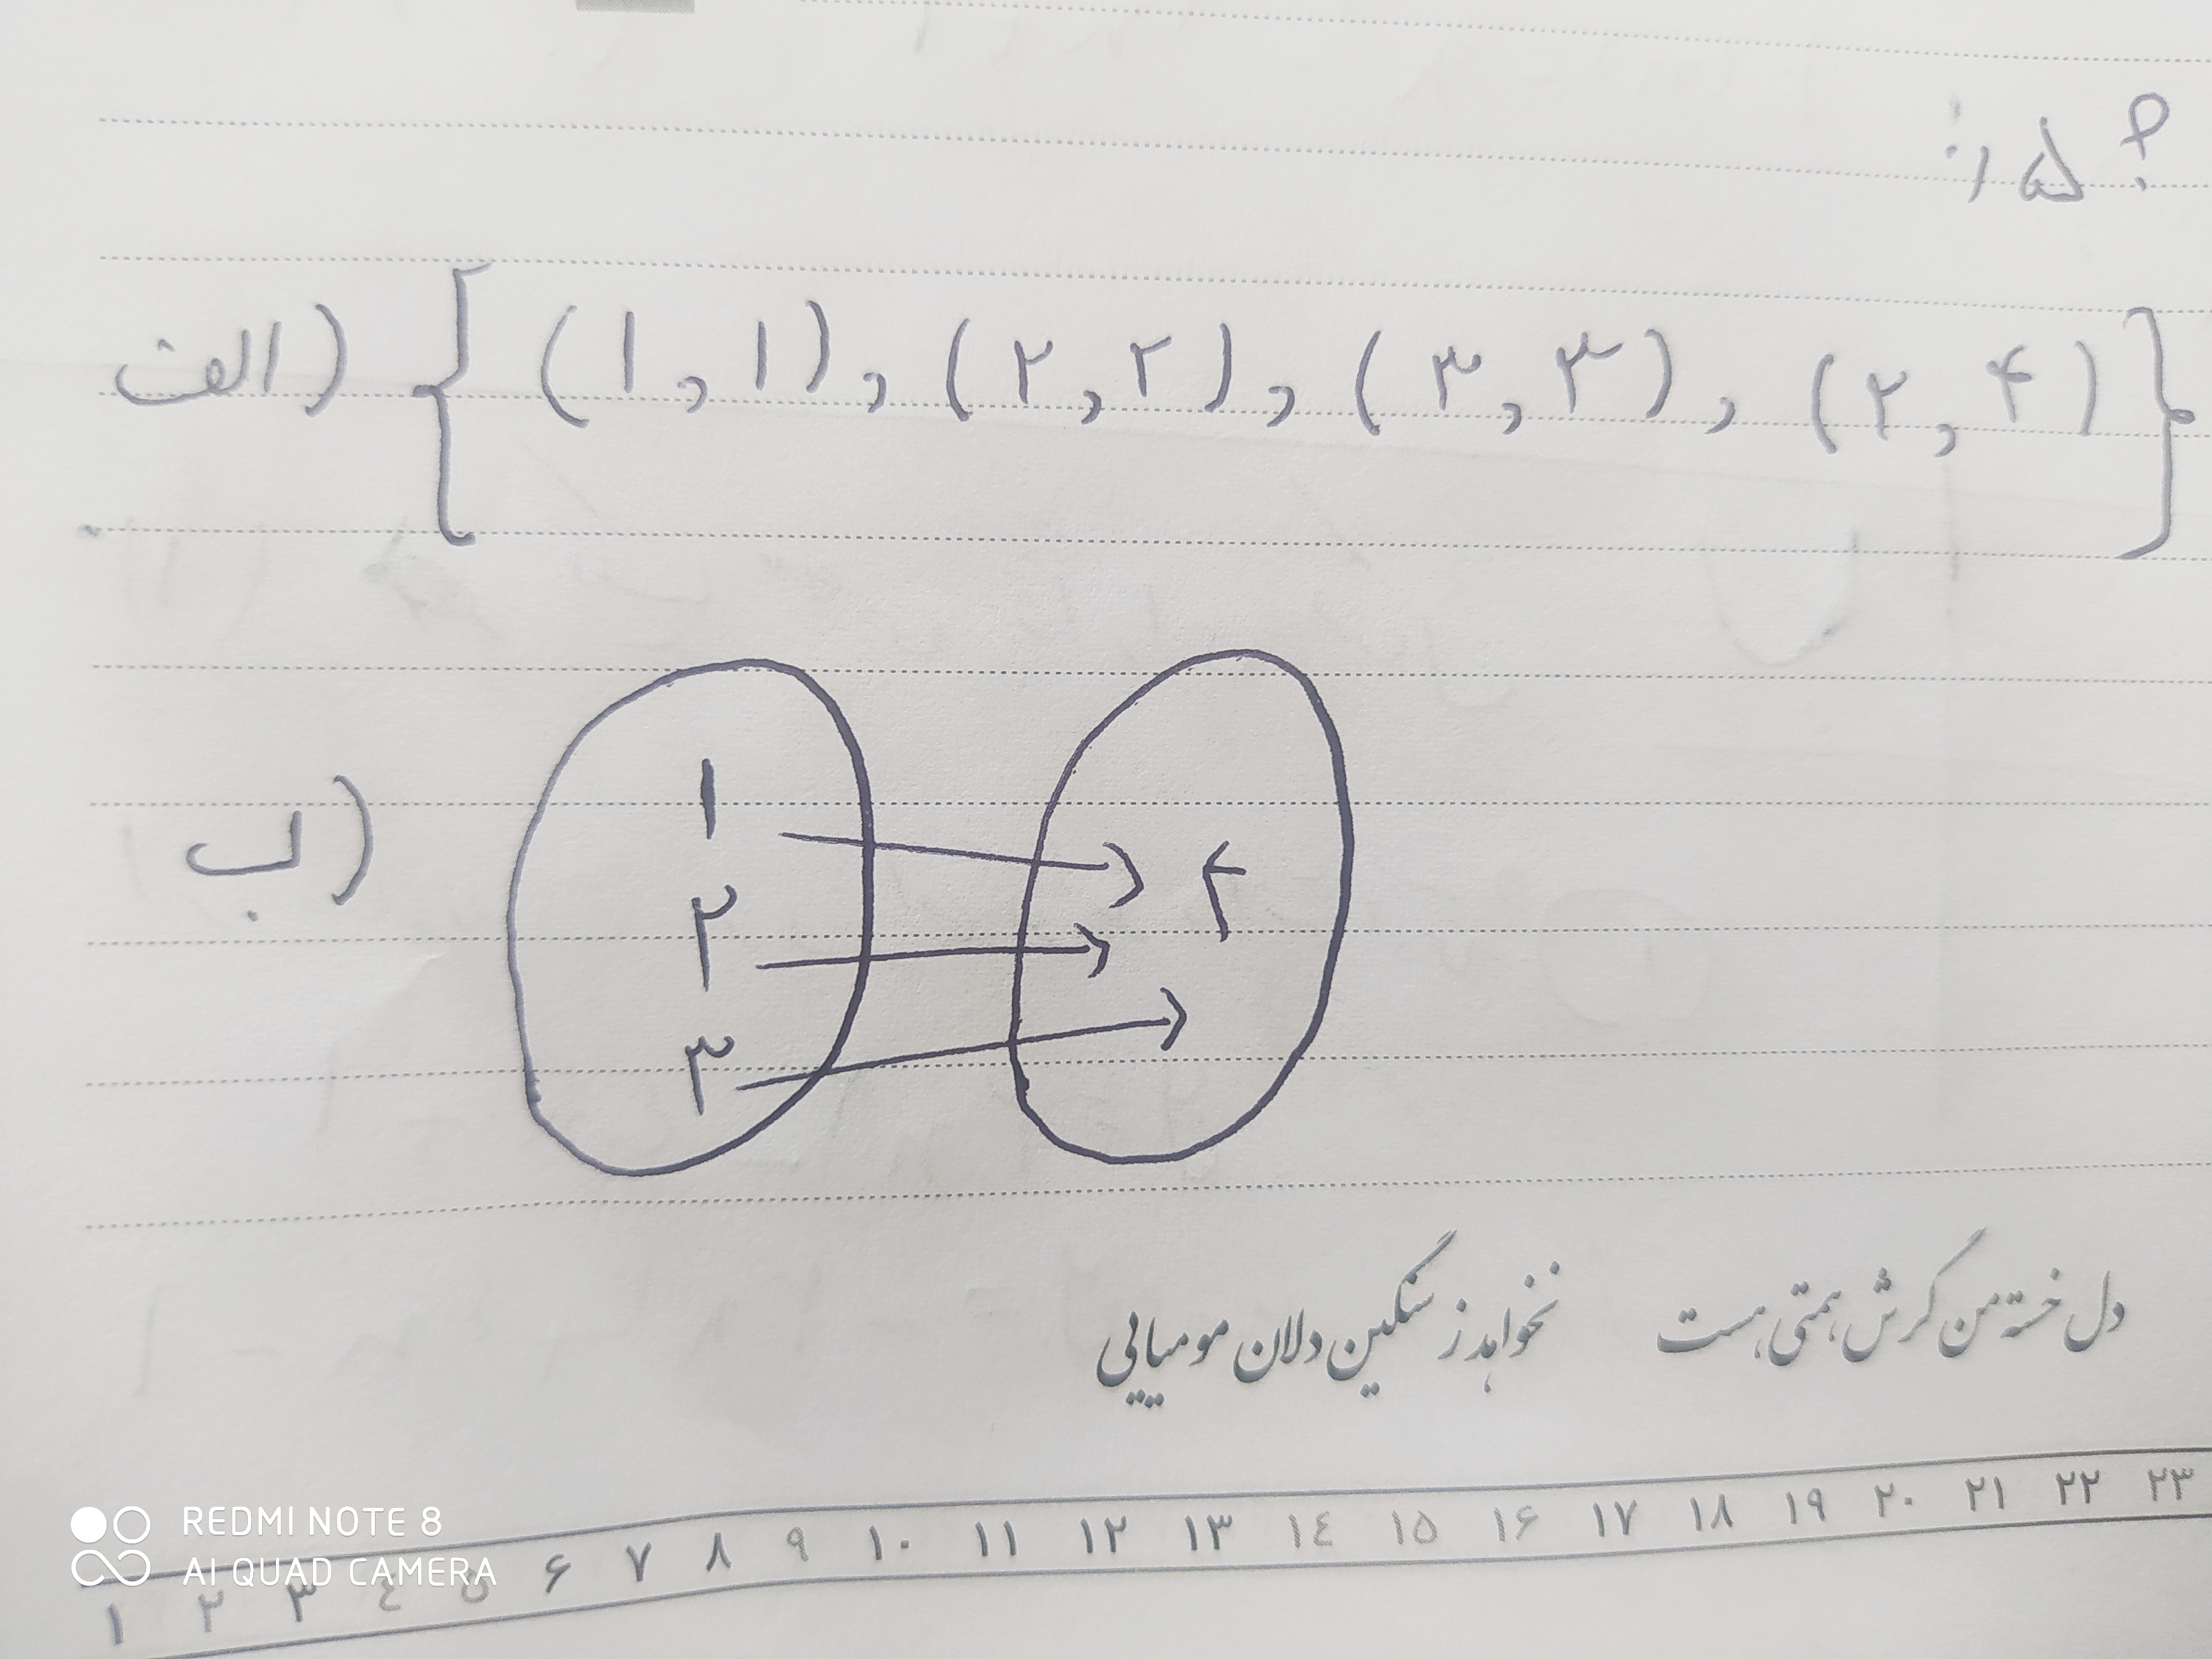 ؟ ۱۵:
الف) {(۱,۱), (۲,۲), (۳,۳), (۲,۴)}
ب)
۱
۲
۳
۴
دل خسته من گرش همتی هست نخواهد ز سنگین دلان مومیایی
REDMI NOTE 8
AI QUAD CAMERA
۱ ۲ ۳ ٤ ۵ ۶ ۷ ۸ ۹ ۱۰ ۱۱ ۱۲ ۱۳ ۱٤ ۱۵ ۱۶ ۱۷ ۱۸ ۱۹ ۲۰ ۲۱ ۲۲ ۲۳